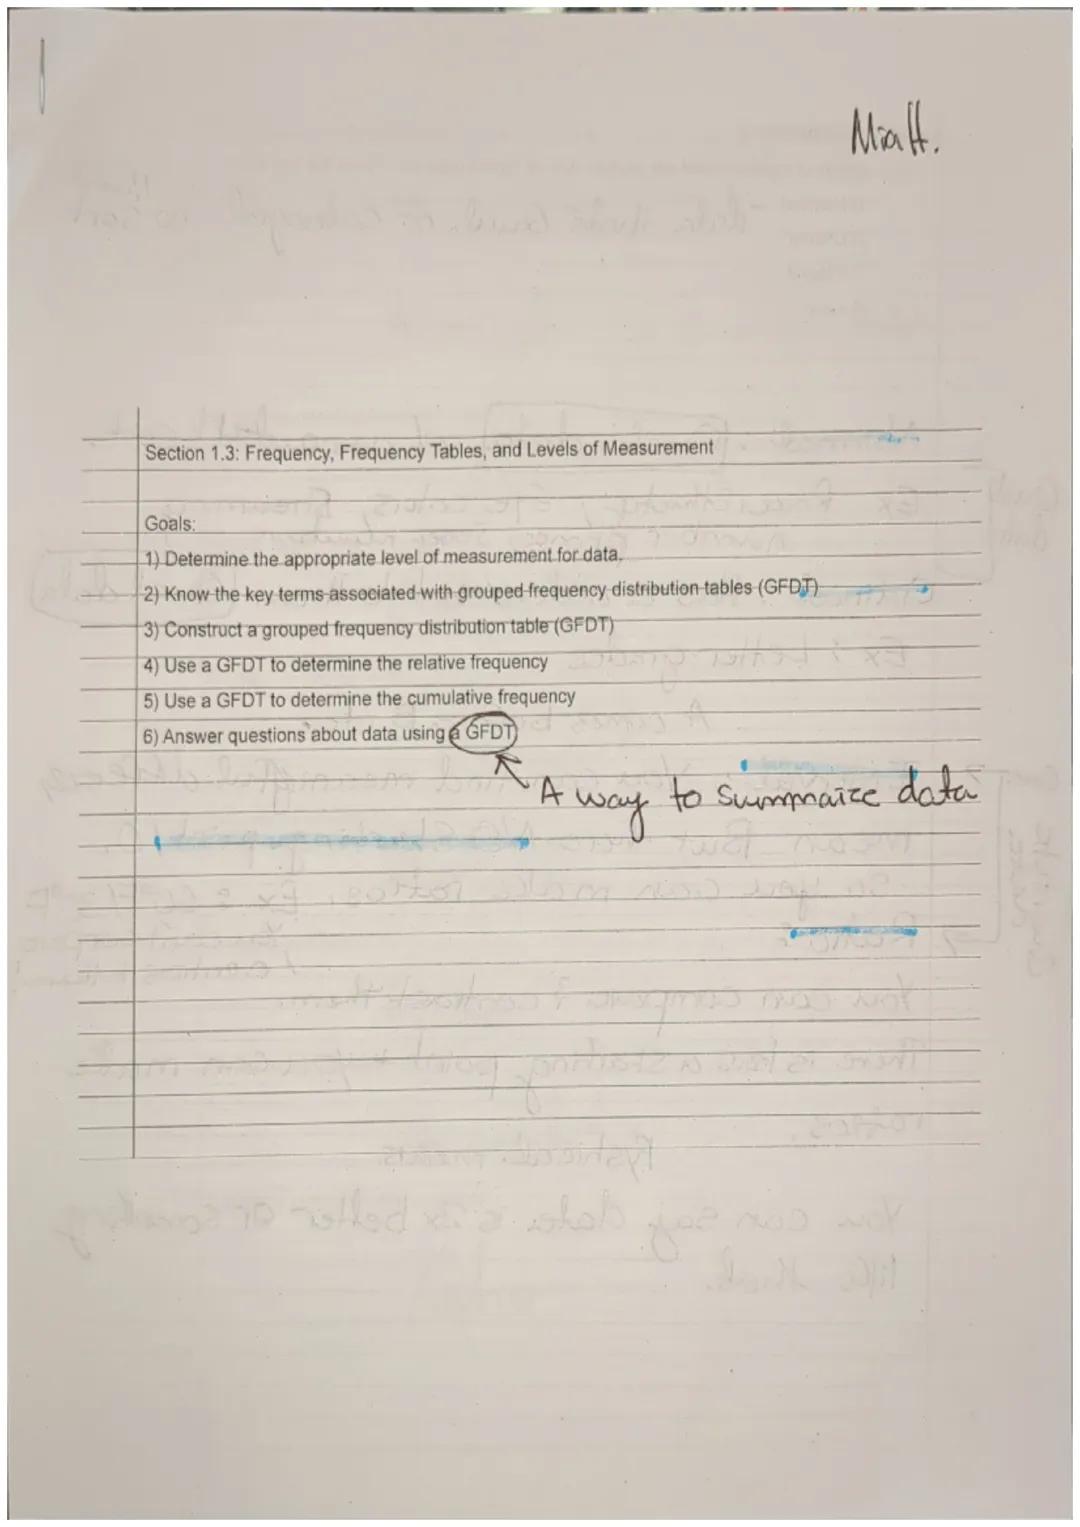 Mia H.
Section 1.3: Frequency, Frequency Tables, and Levels of Measurement
Goals:
1) Determine the appropriate level of measurement for data.
2) Know the key terms associated with grouped frequency distribution tables (GFDT)
3) Construct a grouped frequency distribution table (GFDT)
4) Use a GFDT to determine the relative frequency
5) Use a GFDT to determine the cumulative frequency
6) Answer questions about data using a GFDT
A way to summaize data